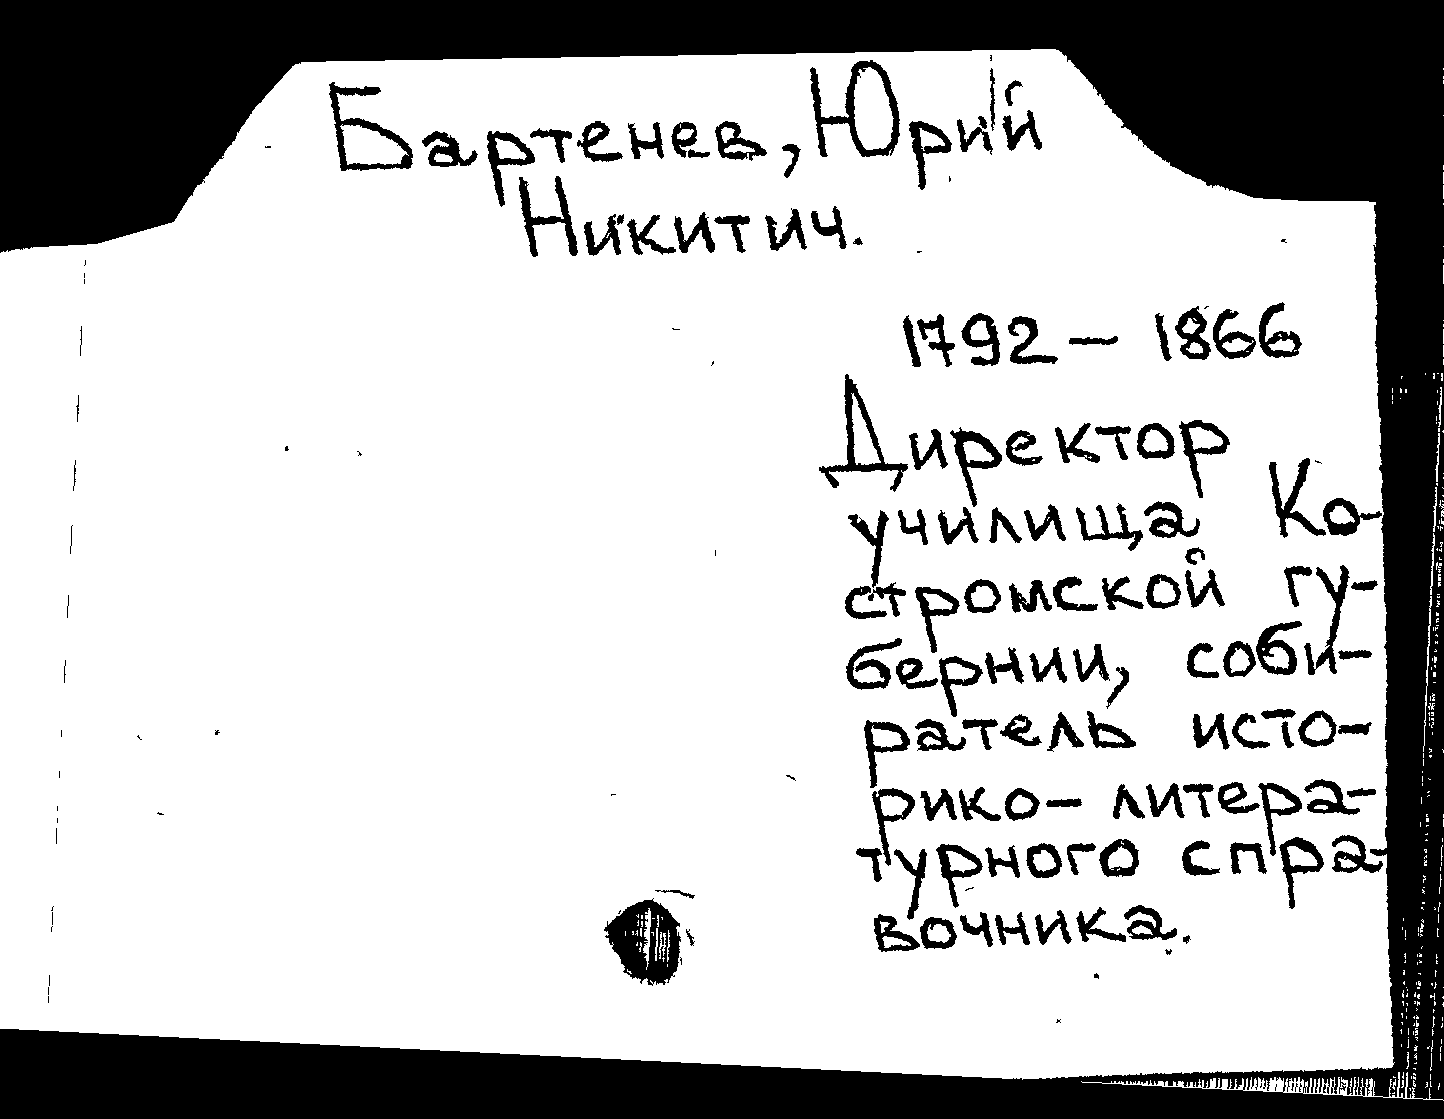 Бартенев, Юрий
Никитич.
1792 – 1866
Директор
училища Ко-
стромской гу-
бернии, соби-
ратель исто-
рико-литера-
турного спра-
вочника.